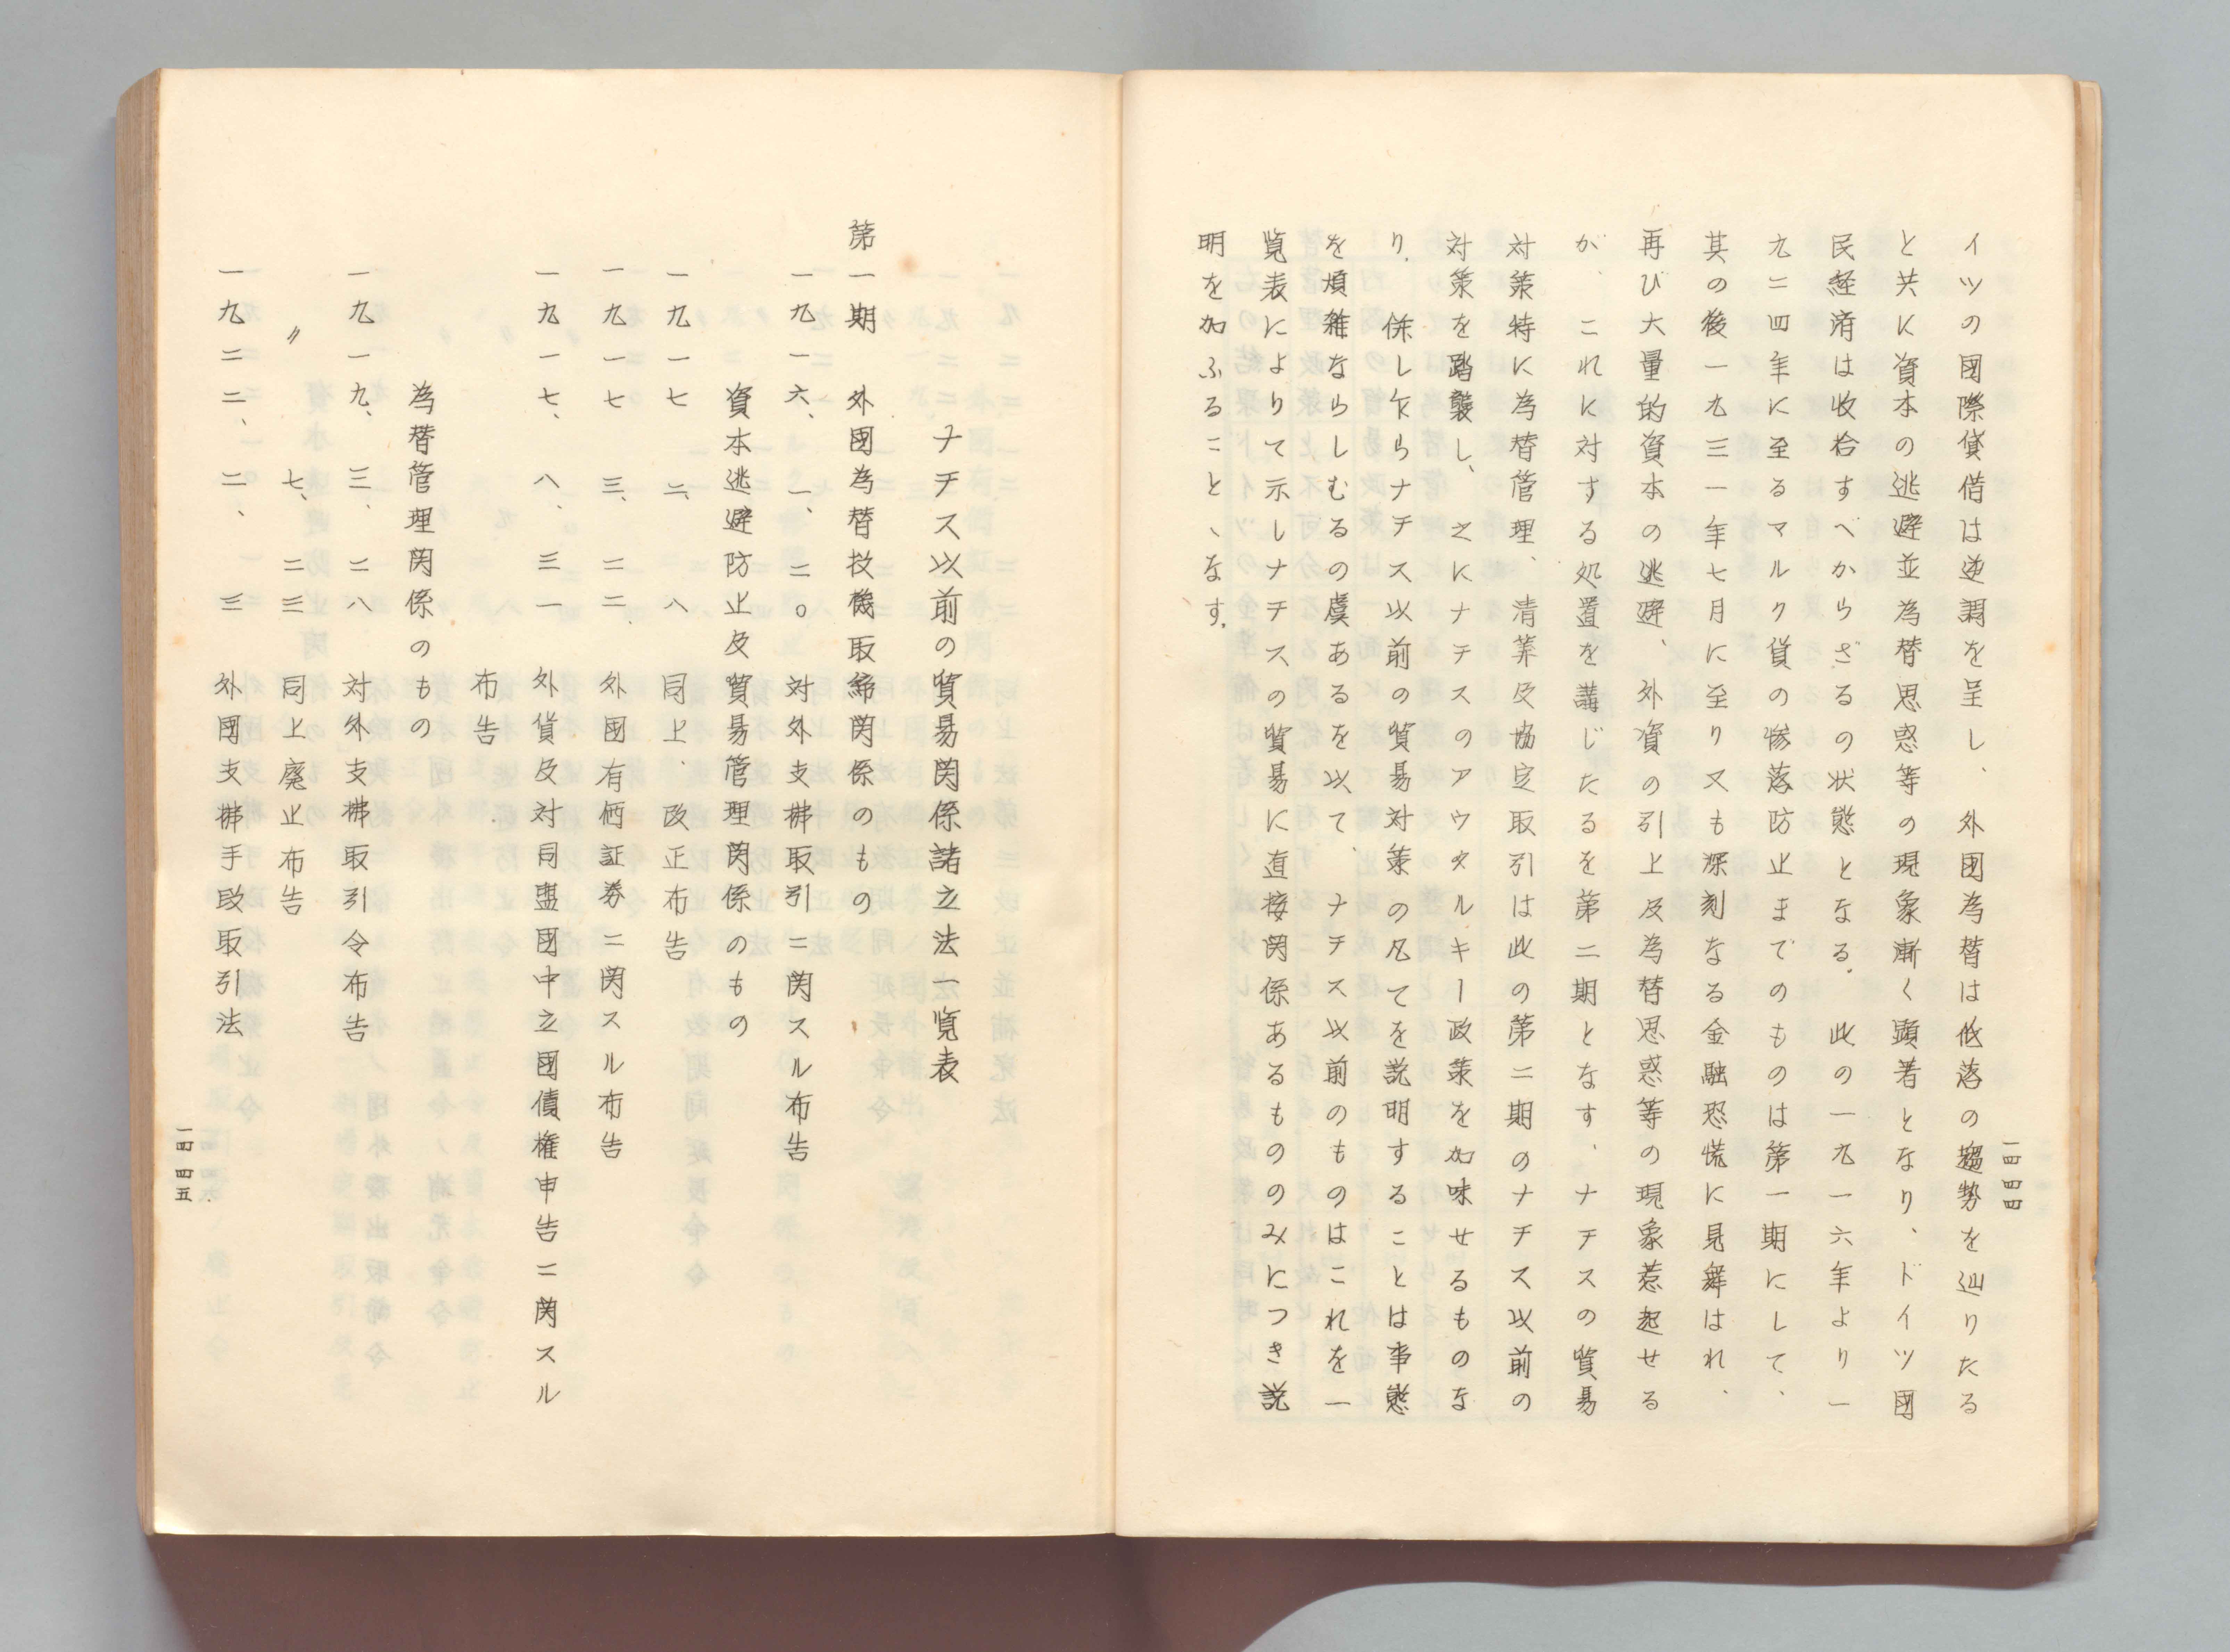 イツの國際貸借は逆調を呈し、外國為替は低落の趨勢を辿りたる
と共に資本の逃避並為替思惑等の現象漸く顕著となり、ドイツ國
民経済は收拾すべからざるの状態となる。此の一九一六年より一
九二四年に至るマルク貨の惨落防止までのものは第一期にして、
其の後一九三一年七月に至り又も深刻なる金融恐慌に見舞はれ、
再び大量的資本の逃避、外資の引上及為替思惑等の現象惹起せる
が、これに対する処置を講じたるを第二期となす、ナチスの貿易
対策特に為替管理、清算及協定取引は此の第二期のナチス以前の
対策を踏襲し、之にナチスのアウタルキー政策を加味せるものな
り。併し乍らナチス以前の貿易対策の凡てを説明することは事態
を煩雑ならしむるの虞あるを以て、ナチス以前のものはこれを一
覧表によりて示しナチスの貿易に直接関係あるもののみにつき説
明を加ふることゝなす。
一四四四
ナチス以前の貿易関係諸立法一覧表
第一期 外國為替投機取締関係のもの
一九一六、一、二〇。 対外支拂取引ニ関スル布告
資本逃避防止及貿易管理関係のもの
一九一七 二、八 同上、改正布告
一九一七 三、二二、 外國有価証券ニ関スル布告
一九一七、八、三一 外貨及対同盟國中立國債権申告ニ関スル
布告
為替管理関係のもの
一九一九、三、二八 対外支拂取引令布告
〃 七、二三 同上廃止布告
一九二二、二、三 外國支拂手段取引法
一四四五